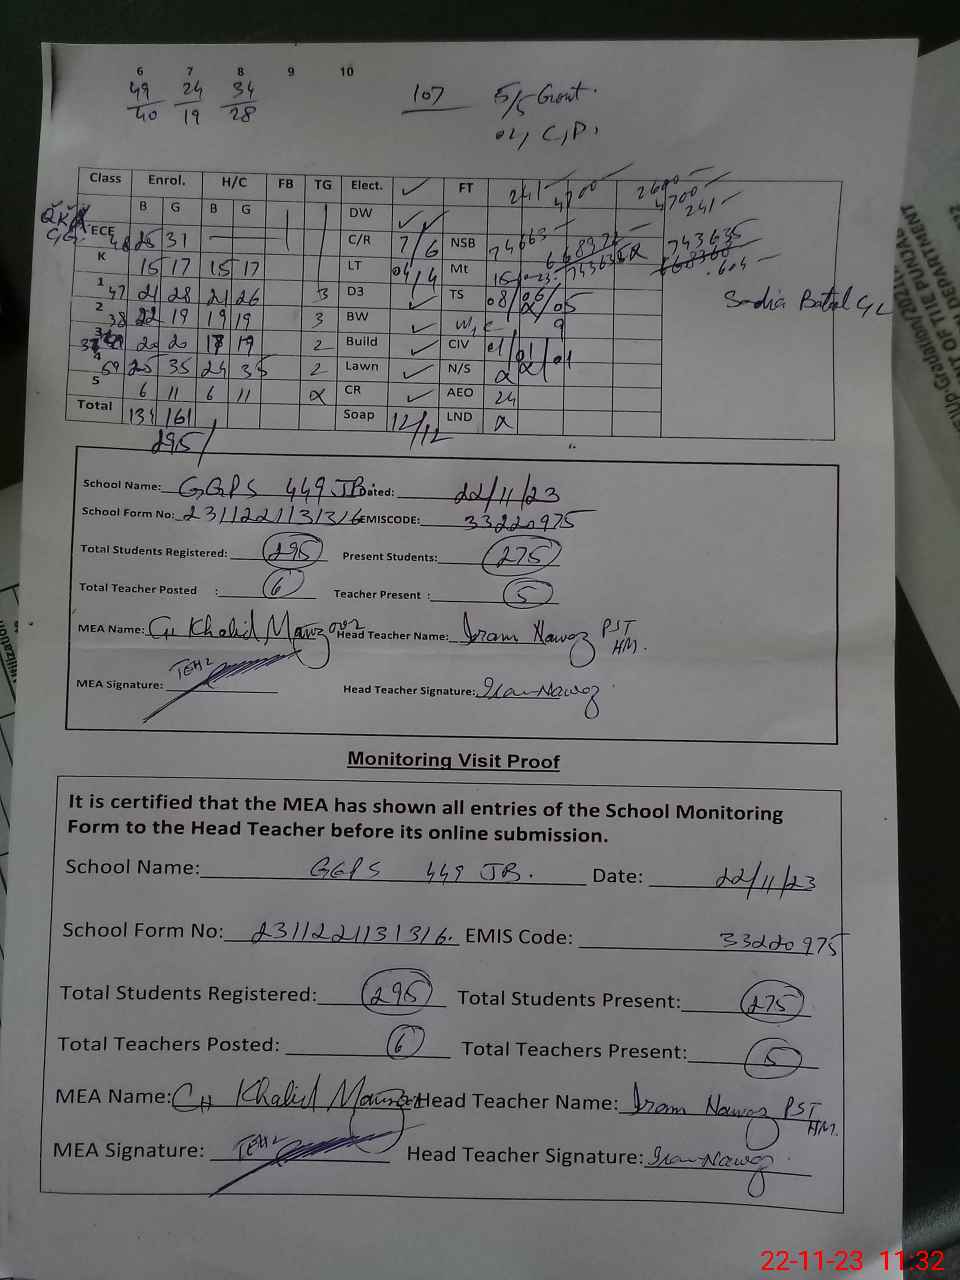 6 7 8 9 10
49 24 34
40 19 28
107 5/5 Grant.
Class Enrol. H/C FB TG Elect. ✓ FT 241 2600
B G B G DW ✓✓ 4700 241
ECE 25 31 — C/R 7/6 NSB 743635
K 15 17 15 17 LT 04/4 Mt
1 47 21 28 21 26 3 D3 ✓ TS 08/06/05 Sadia Batool
2 38 22 19 19 19 3 BW ✓ 9
3 20 20 18 19 2 Build ✓ CIV 01/01/01
4 59 25 35 24 35 2 Lawn ✓ N/S
5 6 11 6 11 CR ✓ AEO 24
Total 134 161 Soap 12/12 LND
295
School Name: GGPS 449 JB. Dated: 22/11/23
School Form No: 2311221131316 EMISCODE: 33220975
Total Students Registered: 295 Present Students: 275
Total Teacher Posted : 6 Teacher Present : 5
MEA Name: Ch Khalid Manzoor Head Teacher Name: Iram Nawaz PST
HM.
MEA Signature: Head Teacher Signature: Iram Nawaz
Monitoring Visit Proof
It is certified that the MEA has shown all entries of the School Monitoring
Form to the Head Teacher before its online submission.
School Name: GGPS 449 JB. Date: 22/11/23
School Form No: 2311221131316. EMIS Code: 33220975
Total Students Registered: 295 Total Students Present: 275
Total Teachers Posted: 6 Total Teachers Present: 5
MEA Name: CH Khalid Manzoor Head Teacher Name: Iram Nawaz PST
HM.
MEA Signature: Head Teacher Signature: Iram Nawaz
22-11-23 11:32